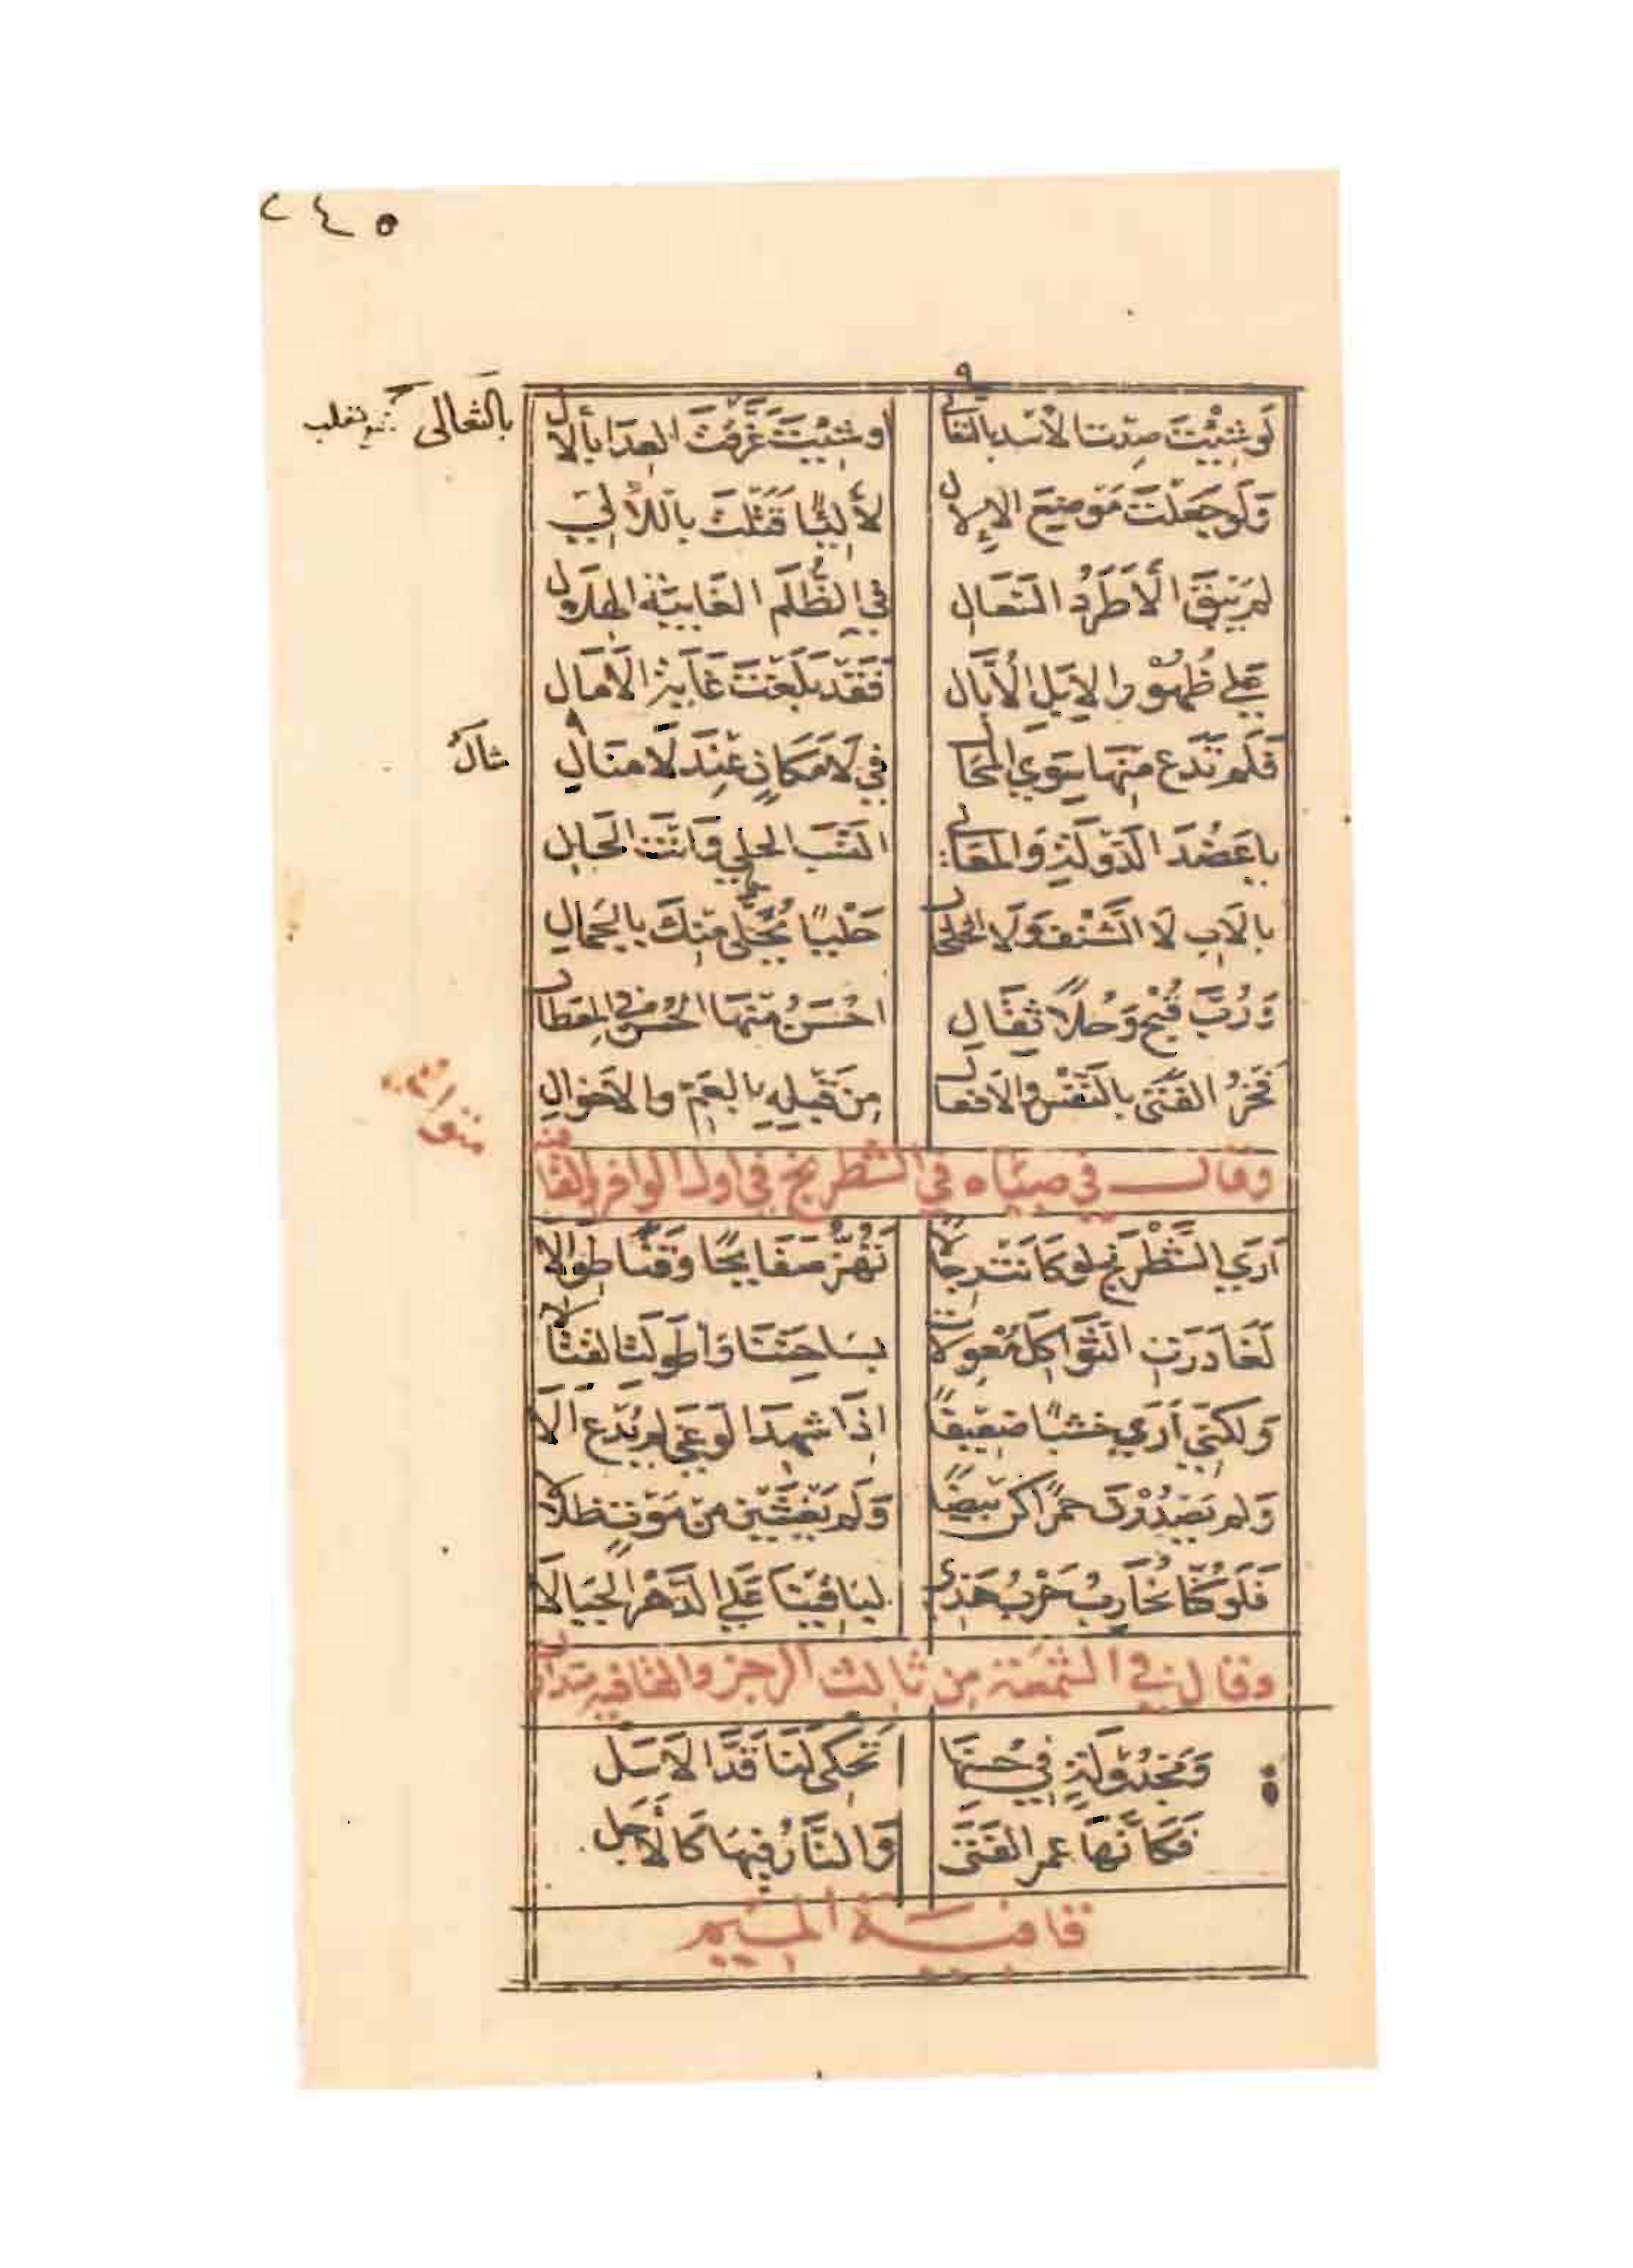 ٢٤٥
لَو شِئْتَ صِدْتَ الأُسْدَ بالثَعَالي او شِئْتَ غَرَّقْتَ العِدَا بالآلِ
بالثعالى جمع ثعلب
وَلَو جَعَلْتَ مَوضِعَ الإلالِ لآلِئًا قَتَلْتَ باللآلي
لم يَبْقَ الا طَرَدُ السَّعَالي في الظُّلَمِ الغَايبَةِ الهلالِ
على ظُهُورِ الإبِلِ الأُبَّالِ فَقَد بَلَغْتَ غَايَةَ الآمَالِ
فَلَم تَدَع مِنْهَا سِوَى المُحَالِ في لَا مَكَانٍ عِنْدَ لَا مَنَالِ
يا عَضُدَ الدَوْلَةِ وَالمعَالي النَسَبُ الحلي وَانْتَ الحَالي
بالاَبِ لَا الشَّنْفِ وَلَا الخَلْخَالِ حَلْيًا تَحَلَّى مِنْكَ بالجَمالِ
وَرُبَّ قُبْحٍ وَحُلًا ثِقَالِ احْسَنُ مِنْهَا الحُسْنُ في المِعْطَالِ
فَخْرُ الفَتَى بالنَفْسِ والافعَالِ مِن قَبْلِهِ بالعَمِّ والاَخْوالِ
وقال في صباه في الشطرنج في اول الوافر والقافية
متواتر
اَرَى الشَّطْرَنْجَ لو كَانَتْ رِجَالًا تَهُزُّ صَفَايحًا وَقَنًا طِوَالا
لَغَادَرَتِ الثَوَاكِلَ مُعْوِلاتٍ بسَاحَتِنَا وَاَطْوَلَتِ القِتَالا
وَلكنّي اَرَى خشبًا ضَعِيفًا اِذَا شهِدَ الوَغَى لم يَدَعِ الَا
وَلَو كُنَّا نُحَارِبُ حَرْبَ هَذِي لبَاقَيْنَا عَلى الدَهْرِ الجِبَالَا
وقال في الشمعة من ثالث الرجز والقافيه متدارك
وَمَجْدُولَةٍ في حُسْنِهَا تَحْكى لَنَا قَدَّ الاَسَل
فَكَاَنَّهَا عمر الفَتَى وَالنَّارُ فِيهَا كَالأجَل
قافية الميم